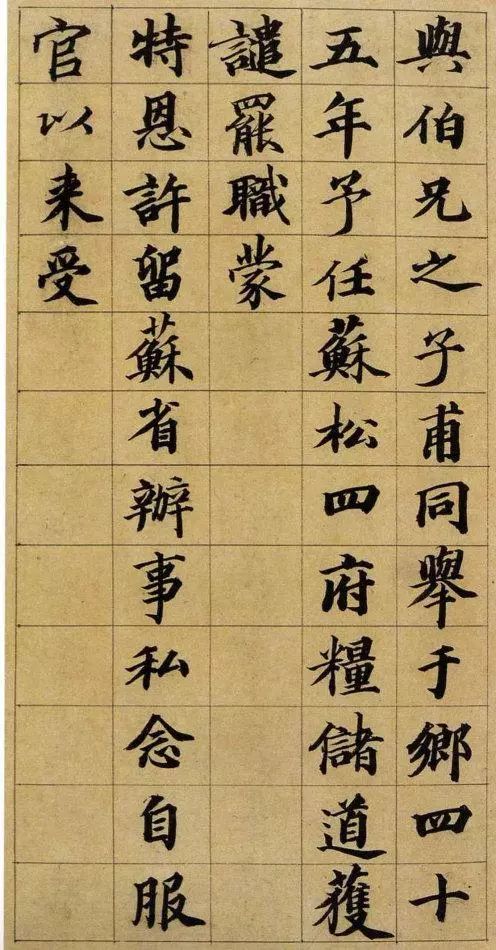 與伯兄之子甫同舉于鄉四十
五年予任蘇松四府糧儲道蒦
譴罷職蒙
特恩許留蘇省辦事私念自服
官以来受